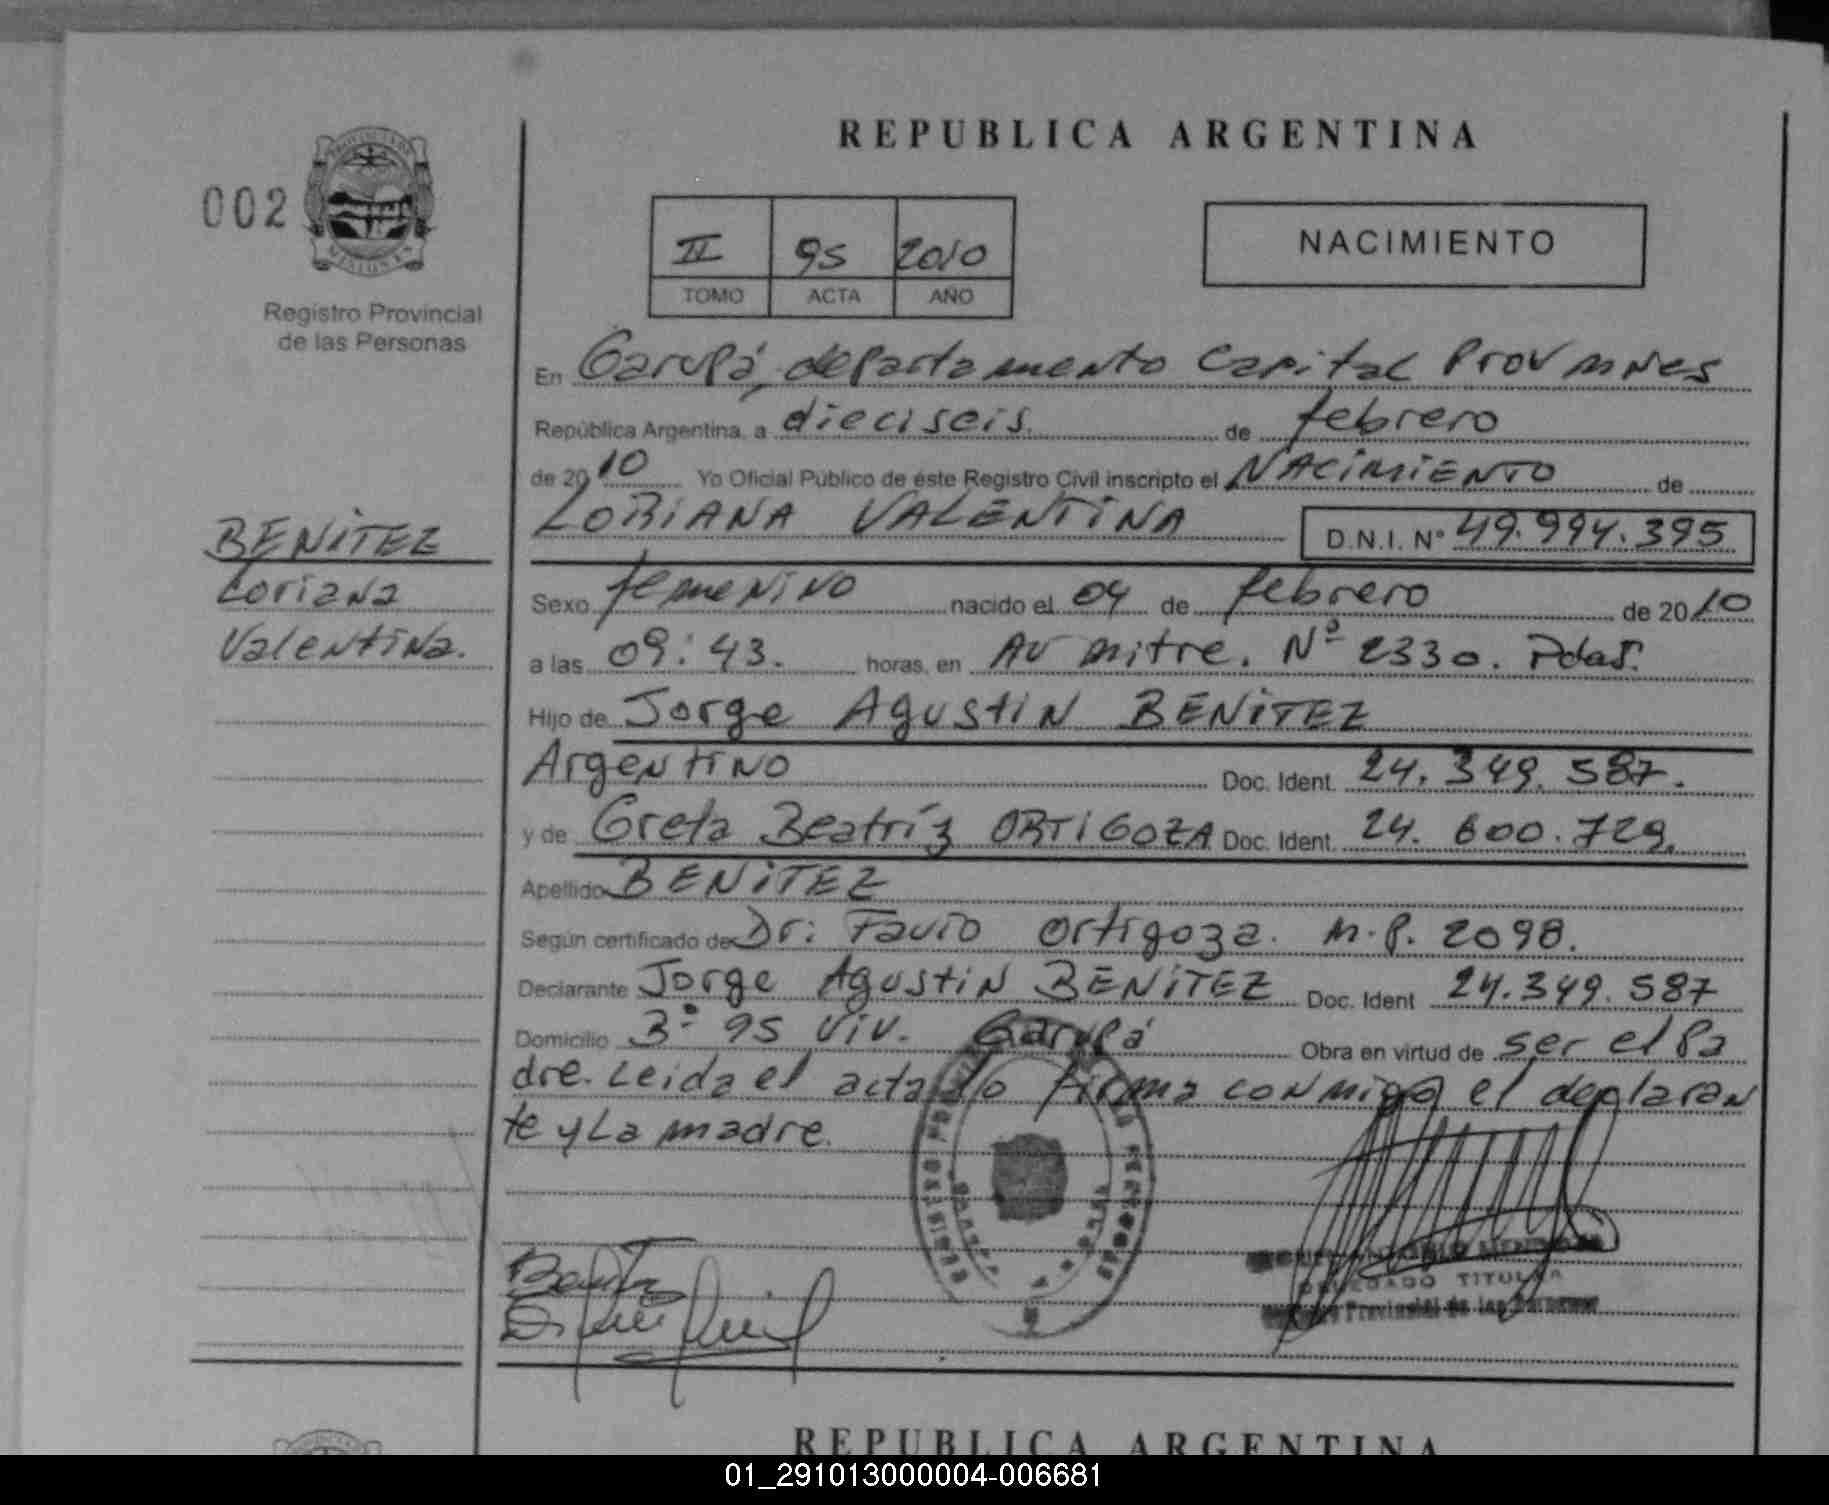 REPUBLICA ARGENTINA
002
PROVINCIA DE
MISIONES
Registro Provincial
de las Personas
II 95 2010
TOMO ACTA AÑO
NACIMIENTO
En Garupá, departamento Capital Prov Mnes
República Argentina, a dieciseis. de febrero
de 2010 Yo Oficial Público de éste Registro Civil inscripto el NACIMIENTO de
LORIANA VALENTINA D.N.I. N° 49.994.395
BENITEZ
Loriana
Valentina.
Sexo femenino nacido el 04 de febrero de 2010
a las 09:43. horas, en Av mitre. Nº 2330. Pdas.
Hijo de Jorge Agustin BENITEZ
Argentino Doc. Ident. 24.349.587.
y de Greta Beatríz ORTIGOZA Doc. Ident. 24.600.729.
Apellido BENITEZ
Según certificado de Dr: Favio Ortigoza. M.P. 2098.
Declarante Jorge Agustin BENITEZ Doc. Ident 24.349.587
Domicilio 3° 95 viv. Garupá Obra en virtud de ser el Pa
dre. Leida el acta lo firma conmigo el declaran
te y La madre.
DELEGADO TITULAR
Provincial de las Personas
REPUBLICA ARGENTINA
01_291013000004-006681